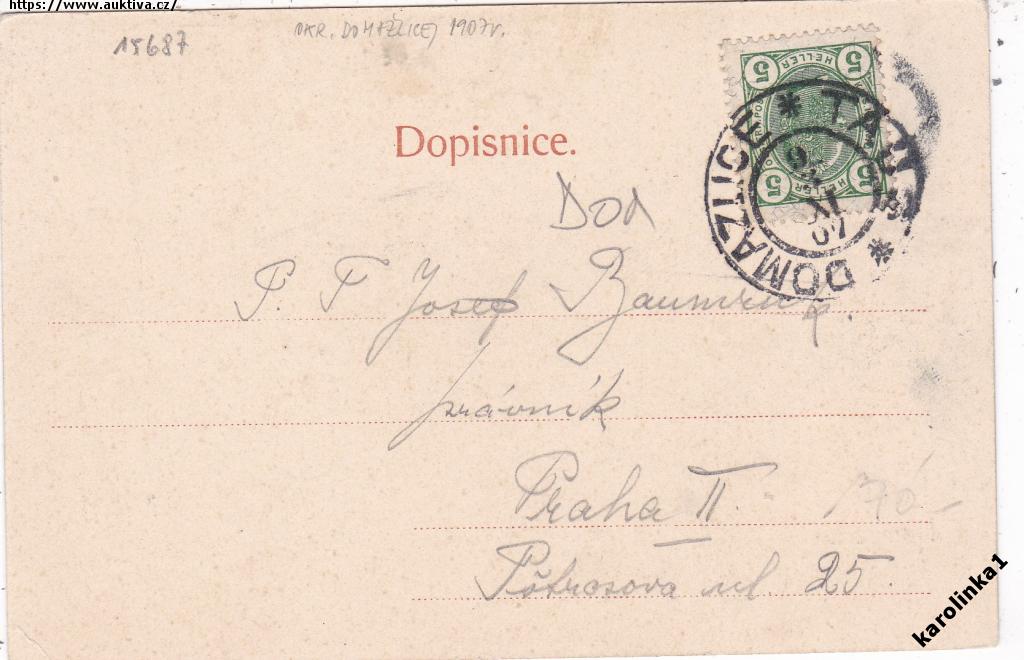 https://www.auktiva.cz/
15687
OKR. DOMAŽLICE, 1907 v.
Dopisnice.
5 HELLER 5
5 HELLER 5
DOMAZLICE * TAUS *
XI
07
DOM
P. T Josef Baumruk
právník
Praha II.
170-
Pštrosova ul 25.
karolinka1